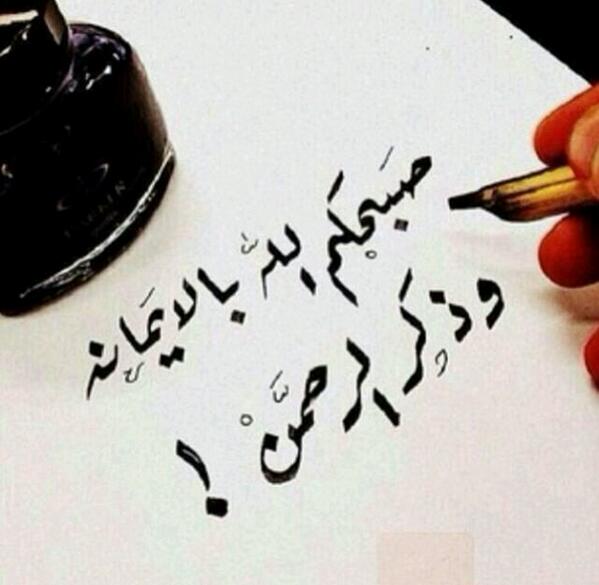 صبَحكم اللّه بالايمَان
وذكِر الرحمَّنْ !